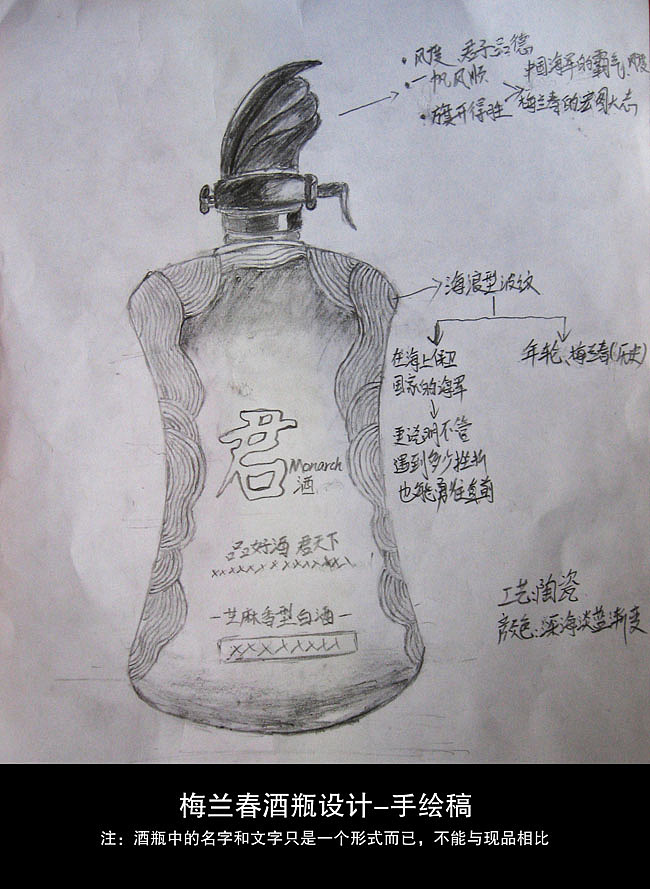 ·风度 君子品德
·一帆风顺
·旗开得胜
中国海军的霸气风度
梅兰春的宏图大志
海浪型波纹
在海上保卫
国家的海军
更说明不管
遇到多少挫折
也能勇往直前
年轮、梅兰春(历史)
君
Monarch
酒
品好酒 君天下
-芝麻香型白酒-
XXXXXXXX
工艺:陶瓷
颜色:深海淡蓝渐变
梅兰春酒瓶设计-手绘稿
注：酒瓶中的名字和文字只是一个形式而已，不能与现品相比